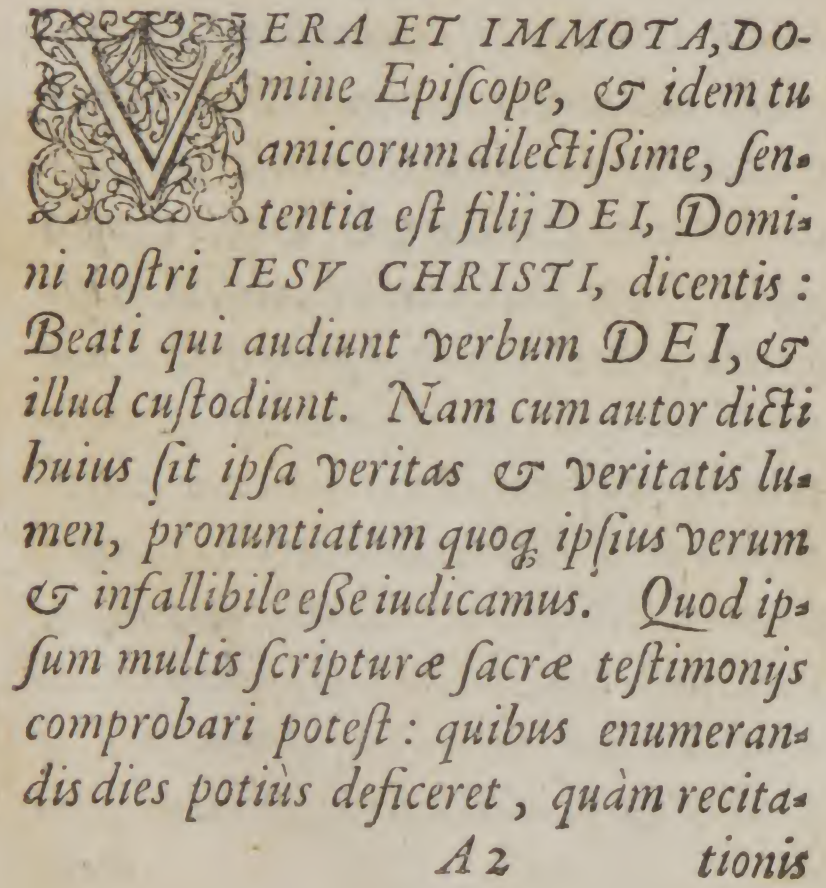 VERA ET IMMOTA, DO-
mine Epiſcope, & idem tu
amicorum dilectiſsime, ſen-
tentia eſt filij DEI, Domi-
ni noſtri IESV CHRISTI, dicentis :
Beati qui audiunt verbum DEI, &
illud cuſtodiunt. Nam cum autor dicti
huius ſit ipſa veritas & veritatis lu-
men, pronuntiatum quoq; ipſius verum
& infallibile eſse iudicamus. Quod ip-
ſum multis ſcripturæ ſacræ teſtimonijs
comprobari poteſt : quibus enumeran-
dis dies potiùs deficeret , quàm recita-
A 2 tionis